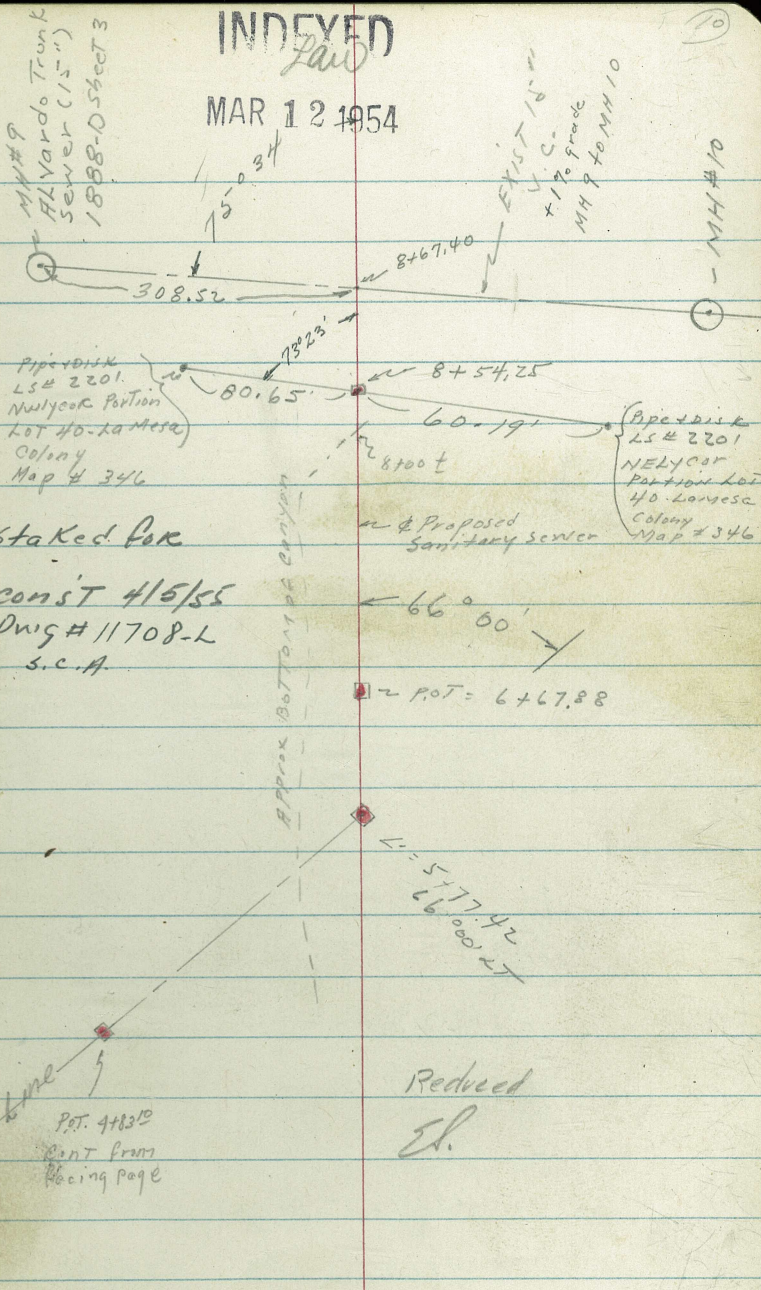 10
INDEXED
Law
MAR 12 1954
MH#9
ALvardo Trunk
Sewer (15")
1888-D Sheet 3
75-0 34
EXIST 15"
V.C.
+1% grade
MH 9 to MH 10
MH#10
8+67.40
308.52
73°23'
Pipe+Disk
LS# 2201
Nwlycor Portion
LOT 40-LaMesa
Colony
Map # 346
80.65'
8+54.25
60.19'
Pipe+Disk
LS# 2201
NELYCor
Portion LoT
40-Lamesa
Colony
Map # 346
8+00 ±
Approx Bottom of Canyon
℄ Proposed
Sanitary Sewer
Staked for
consT 4/5/55
Dwg # 11708-L
S.C.A.
66°00'
P.O.T = 6+67.88
5+77.42
66°00' LT
Line
P.O.T. 4+83.10
Cont from
Facing page
Reduced